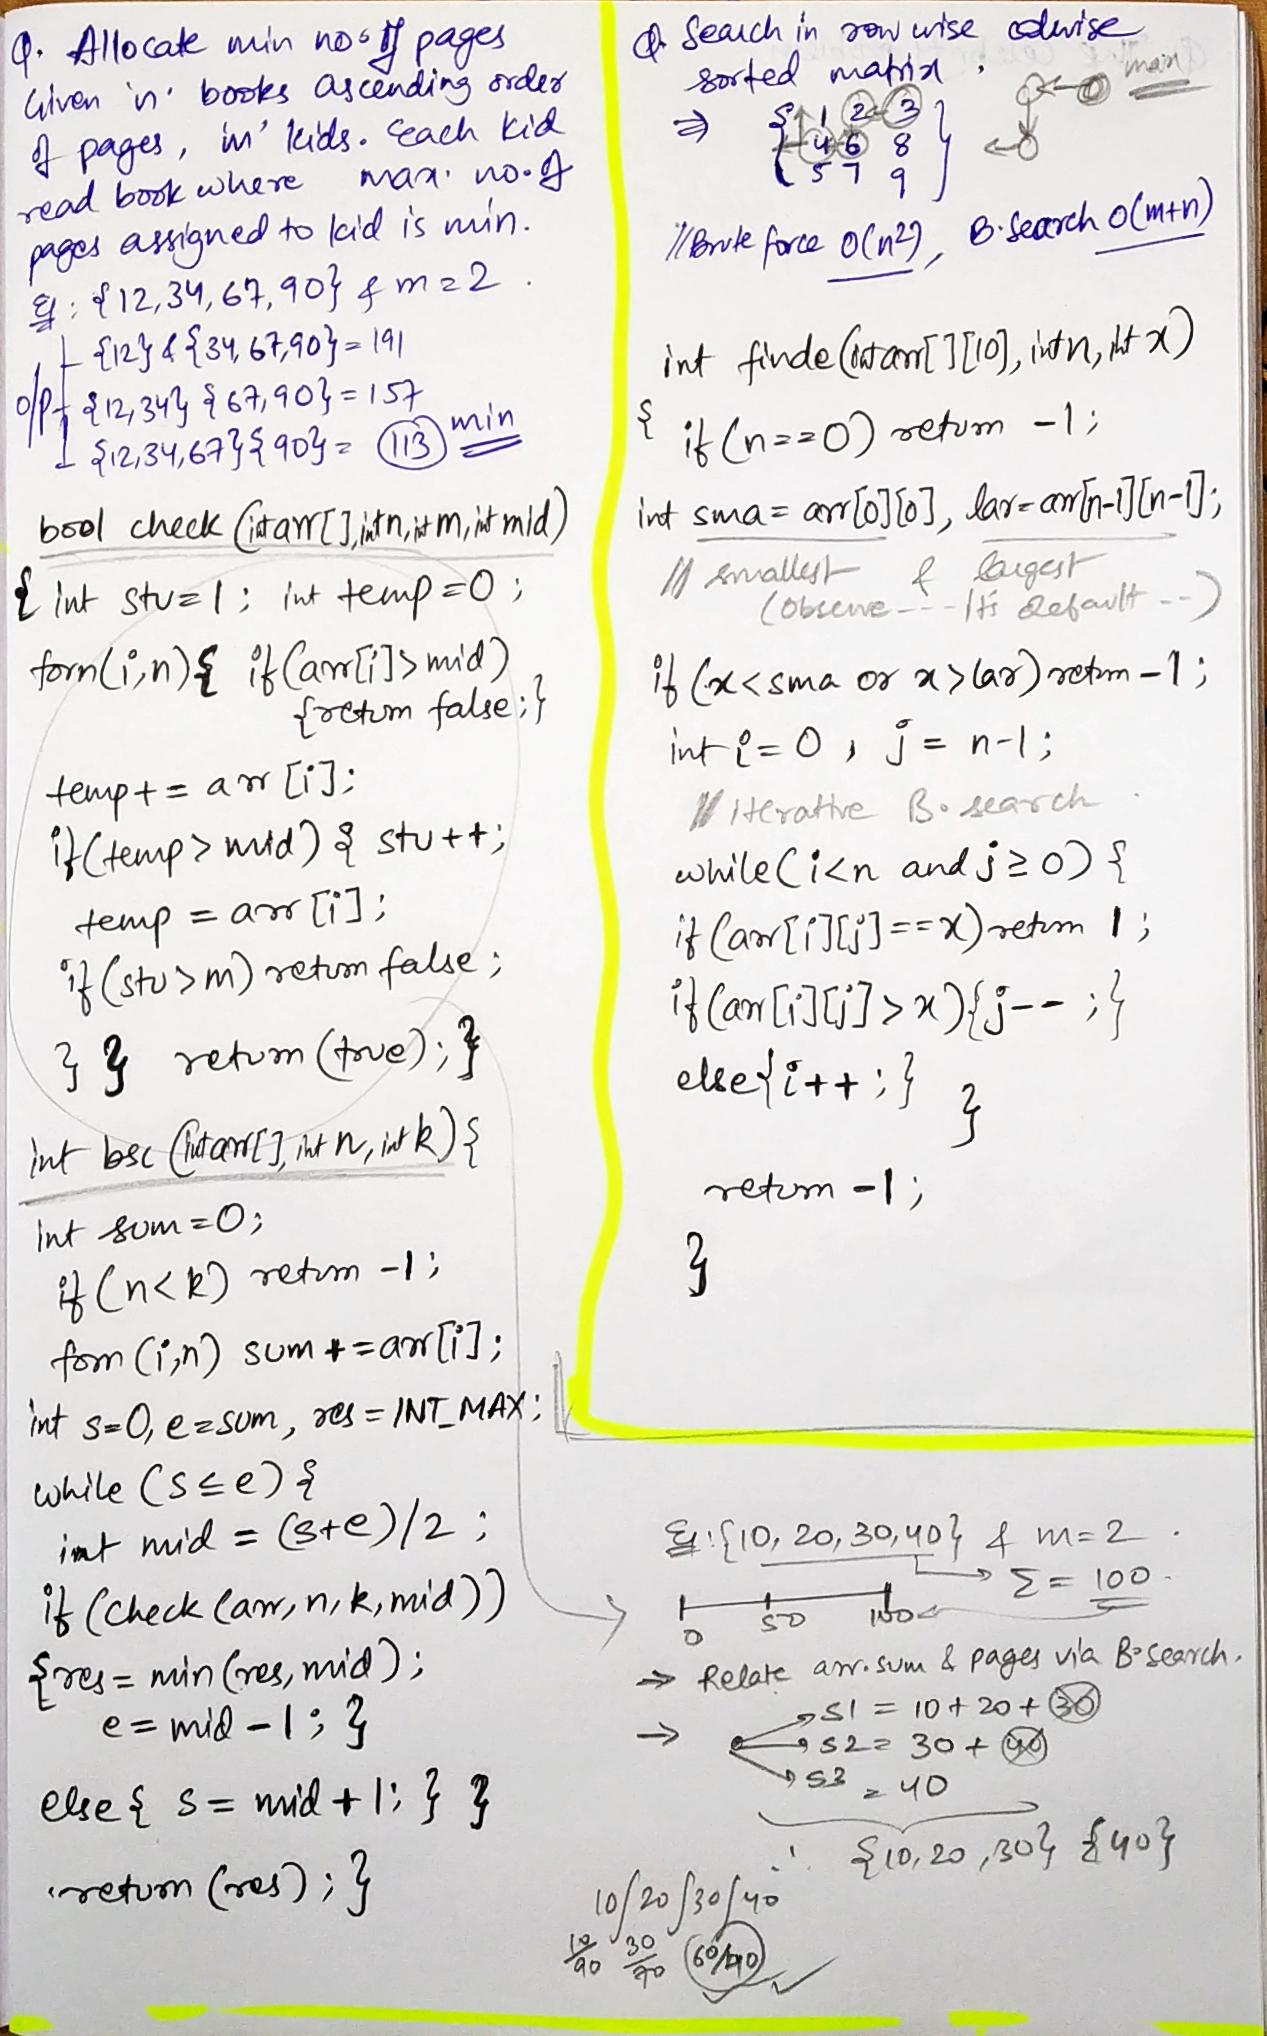 Q. Allocate min no. of pages
Given 'n' books ascending order
of pages, 'm' kids. Each kid
read book where max. no. of
pages assigned to kid is min.
Eg: {12,34,67,90} & m=2.
{12} & {34,67,90} = 191
o/p {12,34} {67,90} = 157
{12,34,67} {90} = 113 min
bool check (int arr[], int n, int m, int mid)
{ int stu=1; int temp=0;
forn(i,n){ if(arr[i]>mid)
{return false;}
temp+=arr[i];
if(temp>mid) { stu++;
temp = arr[i];
if(stu>m) return false;
} } return (true); }
int bsc (int arr[], int n, int k){
int sum=0;
if(n<k) return -1;
forn(i,n) sum+=arr[i];
int s=0, e=sum, res=INT_MAX;
while (s≤e) {
int mid = (s+e)/2;
if (check(arr,n,k,mid))
{res=min(res,mid);
e=mid-1; }
else{ s=mid+1; } }
return (res); }
Q. Search in row wise colwise
sorted matrix.
main
⇒ { 1 2 3
4 6 8
5 7 9 }
//Brute force O(n2), B.Search O(m+n)
int finde(int arr[][10], int n, int x)
{ if(n==0) return -1;
int sma=arr[0][0], lar=arr[n-1][n-1];
// smallest & largest
(Observe --- It's default --)
if (x<sma or x>lar) return -1;
int i=0, j=n-1;
// iterative B.search
while(i<n and j≥0) {
if(arr[i][j]==x) return 1;
if(arr[i][j]>x){j--;}
else{i++;}
}
return -1;
}
Eg: {10,20,30,40} & m=2.
Σ=100
0 50 100
⇒ Relate arr.sum & pages via B.search.
⇒ S1 = 10+20+30
S2 = 30+40
S3 = 40
∴ {10,20,30} {40}
10/20/30/40
10/90 30/70 60/40